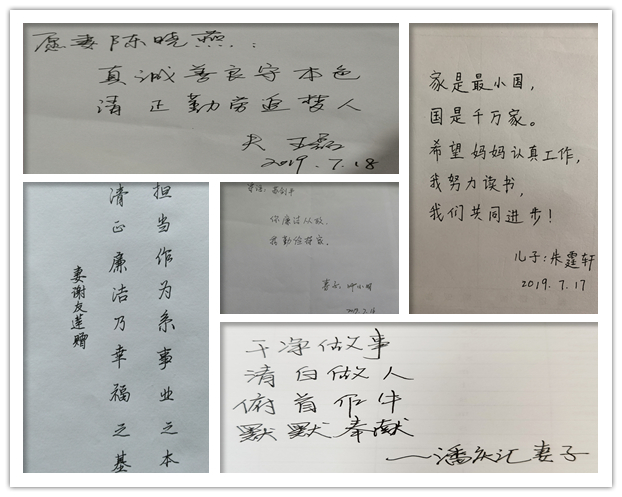 愿妻陈晓燕:
真诚善良守本色
清正勤劳追梦人
夫 王磊
2019.7.18
家是最小国,
国是千万家。
希望妈妈认真工作,
我努力读书,
我们共同进步!
儿子:朱霆轩
2019.7.17
担当作为系事业之本
清正廉洁乃幸福之基
妻谢友莲赠
你廉洁从政,
我勤俭持家。
干净做事
清白做人
俯首作牛
默默奉献
——潘庆汇妻子